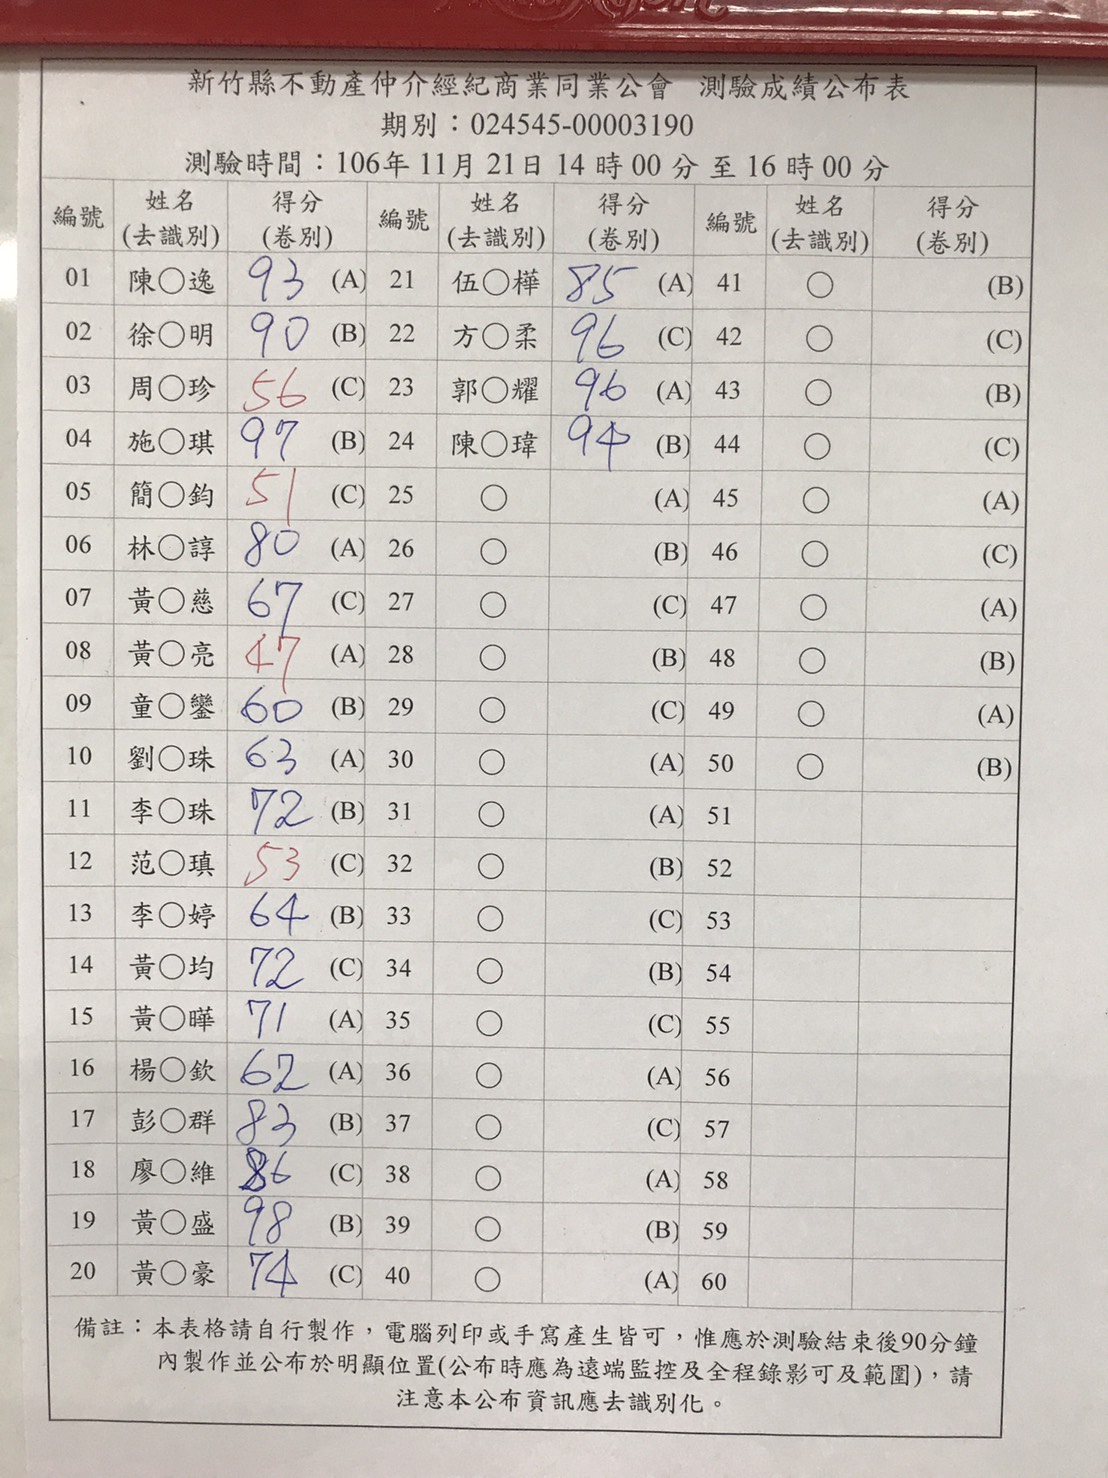 新竹縣不動產仲介經紀商業同業公會 測驗成績公布表
期別：024545-00003190
測驗時間：106年 11月 21日 14 時 00 分 至 16 時 00 分
編號 姓名(去識別) 得分(卷別) 編號 姓名(去識別) 得分(卷別) 編號 姓名(去識別) 得分(卷別)
01 陳○逸 93 (A) 21 伍○樺 85 (A) 41 ○ (B)
02 徐○明 90 (B) 22 方○柔 96 (C) 42 ○ (C)
03 周○珍 56 (C) 23 郭○耀 96 (A) 43 ○ (B)
04 施○琪 97 (B) 24 陳○瑋 94 (B) 44 ○ (C)
05 簡○鈞 51 (C) 25 ○ (A) 45 ○ (A)
06 林○諄 80 (A) 26 ○ (B) 46 ○ (C)
07 黃○慈 67 (C) 27 ○ (C) 47 ○ (A)
08 黃○亮 47 (A) 28 ○ (B) 48 ○ (B)
09 童○鑾 60 (B) 29 ○ (C) 49 ○ (A)
10 劉○珠 63 (A) 30 ○ (A) 50 ○ (B)
11 李○珠 72 (B) 31 ○ (A) 51
12 范○瑱 53 (C) 32 ○ (B) 52
13 李○婷 64 (B) 33 ○ (C) 53
14 黃○均 72 (C) 34 ○ (B) 54
15 黃○曄 71 (A) 35 ○ (C) 55
16 楊○欽 62 (A) 36 ○ (A) 56
17 彭○群 83 (B) 37 ○ (C) 57
18 廖○維 86 (C) 38 ○ (A) 58
19 黃○盛 98 (B) 39 ○ (B) 59
20 黃○豪 74 (C) 40 ○ (A) 60
備註：本表格請自行製作，電腦列印或手寫產生皆可，惟應於測驗結束後90分鐘
內製作並公布於明顯位置(公布時應為遠端監控及全程錄影可及範圍)，請
注意本公布資訊應去識別化。